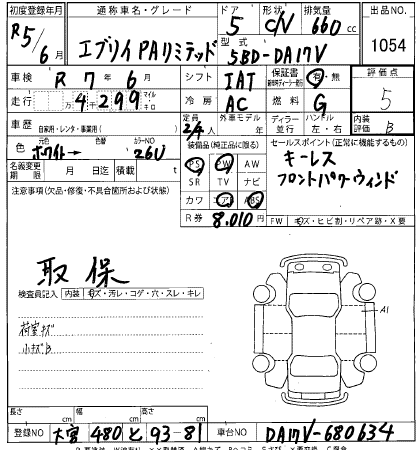 初度登録年月 通称車名・グレード ドア 形状 排気量 出品NO
R5/6月 エブリイ PAリミテッド 5 C/V 660cc 1054
型式 5BD-DA17V
車検 R 7年 6月 シフト IAT 保証書 有・無 評価点
走行 万4299 マイル キロ 冷房 AC 燃料 G 5
車歴 自家用・レンタ・事業用( ) 定員 2/4人 外車モデル 年式 ディーラー 並行 ハンドル 左・右 内装評価 B
色 元色 ホワイト→ 色替 カラーNO 26U 装備品(純正品に限る) セールスポイント(正常に機能するもの)
名義変更期限 月 日迄 積載 t PS PW AW キーレス
注意事項(欠品・修復・不具合箇所および状態) SR TV ナビ フロントパワーウィンド
カワ エアB ABS
R券 8,010円 FW キズ・ヒビ割・リペア跡・X要
取保
検査員記入 内装 キズ・汚レ・コゲ・穴・スレ・キレ
荷室キズ A1
小キズB
長さ cm 幅 cm 高さ cm
登録NO 大宮 480 と 93-81 車台NO DA17V-680634